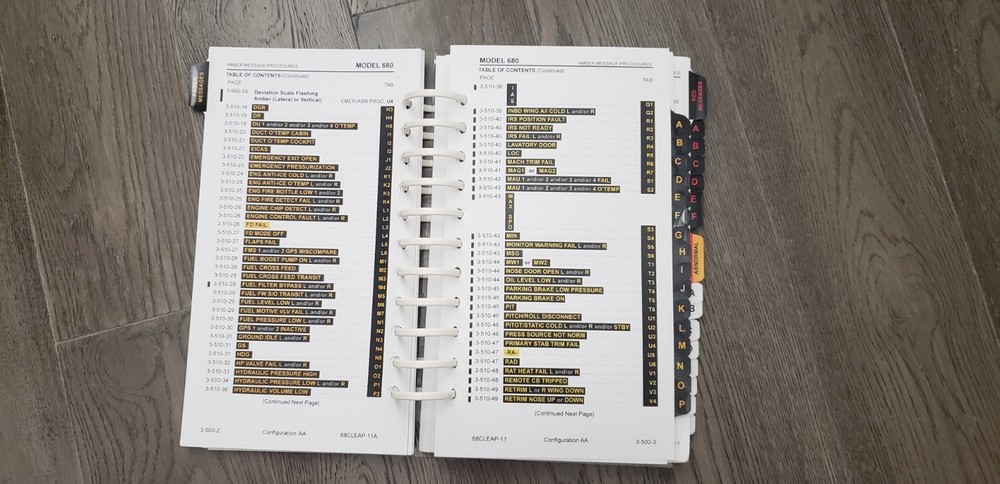 AMBER MESSAGE PROCEDURES MODEL 680
TABLE OF CONTENTS (Continued)
PAGE TAB
3-660-55 Deviation Scale Flashing
Amber (Lateral or Vertical) EMER/ABN PROC. U4
3-510-19 DGR H3
3-510-19 DR H4
3-510-19 DU 1 and/or 2 and/or 3 and/or 4 O'TEMP H5
3-510-21 DUCT O'TEMP CABIN I1
3-510-21 DUCT O'TEMP COCKPIT I2
3-510-21 EICAS I3
3-510-22 EMERGENCY EXIT OPEN J1
3-510-22 EMERGENCY PRESSURIZATION J2
3-510-23 ENG ANTI-ICE COLD L and/or R K1
3-510-24 ENG ANTI-ICE O'TEMP L and/or R K2
3-510-25 ENG FIRE BOTTLE LOW 1 and/or 2 K3
3-510-25 ENG FIRE DETECT FAIL L and/or R K4
3-510-25 ENGINE CHIP DETECT L and/or R L1
3-510-26 ENGINE CONTROL FAULT L and/or R L2
3-510-26 FD FAIL L3
3-510-27 FD MODE OFF L4
3-510-27 FLAPS FAIL L5
3-510-27 FMS 1 and/or 2 GPS MISCOMPARE L6
3-510-28 FUEL BOOST PUMP ON L and/or R M1
3-510-28 FUEL CROSS FEED M2
3-510-28 FUEL CROSS FEED TRANSIT M3
3-510-29 FUEL FILTER BYPASS L and/or R M4
3-510-29 FUEL FW S/O TRANSIT L and/or R M5
3-510-29 FUEL LEVEL LOW L and/or R M6
3-510-29 FUEL MOTIVE VLV FAIL L and/or R M7
3-510-30 FUEL PRESSURE LOW L and/or R N1
3-510-30 GPS 1 and/or 2 INACTIVE N2
3-510-31 GROUND IDLE L and/or R N3
3-510-31 GS N4
3-510-31 HDG N5
3-510-32 HP VALVE FAIL L and/or R O1
3-510-33 HYDRAULIC PRESSURE HIGH O2
3-510-34 HYDRAULIC PRESSURE LOW L and/or R P1
3-510-36 HYDRAULIC VOLUME LOW P2
(Continued Next Page)
3-500-2 Configuration AA 68CLEAP-11A
MESSAGES
MODEL 680 AMBER MESSAGE PROCEDURES
TABLE OF CONTENTS (Continued)
PAGE TAB
3-510-38 IAS Q1
3-510-39 INBD WING A/I COLD L and/or R Q2
3-510-40 IRS POSITION FAULT R1
3-510-40 IRS NOT READY R2
3-510-40 IRS FAIL L and/or R R3
3-510-40 LAVATORY DOOR R4
3-510-40 LOC R5
3-510-41 MACH TRIM FAIL R6
3-510-41 MAG1 or MAG2 R7
3-510-42 MAU 1 and/or 2 and/or 3 and/or 4 FAIL S1
3-510-43 MAU 1 and/or 2 and/or 3 and/or 4 O'TEMP S2
3-510-43 MAX SPD S3
3-510-43 MIN S4
3-510-43 MONITOR WARNING FAIL L and/or R S5
3-510-43 MSG S6
3-510-44 MW1 or MW2 T1
3-510-44 NOSE DOOR OPEN L and/or R T2
3-510-44 OIL LEVEL LOW L and/or R T3
3-510-45 PARKING BRAKE LOW PRESSURE T4
3-510-45 PARKING BRAKE ON T5
3-510-45 PIT T6
3-510-46 PITCH/ROLL DISCONNECT U1
3-510-46 PITOT/STATIC COLD L and/or R and/or STBY U2
3-510-46 PRESS SOURCE NOT NORM U3
3-510-47 PRIMARY STAB TRIM FAIL U4
3-510-47 -RA- U5
3-510-47 RAD U6
3-510-48 RAT HEAT FAIL L and/or R V1
3-510-48 REMOTE CB TRIPPED V2
3-510-49 RETRIM L or R WING DOWN V3
3-510-49 RETRIM NOSE UP or DOWN V4
(Continued Next Page)
68CLEAP-11 Configuration AA 3-500-3
A
B
C
D
E
F
G
H
I
J
K
L
M
N
O
P
RED
MESSAGES
A
B
C
D
E
F
ABNORMAL
A
B